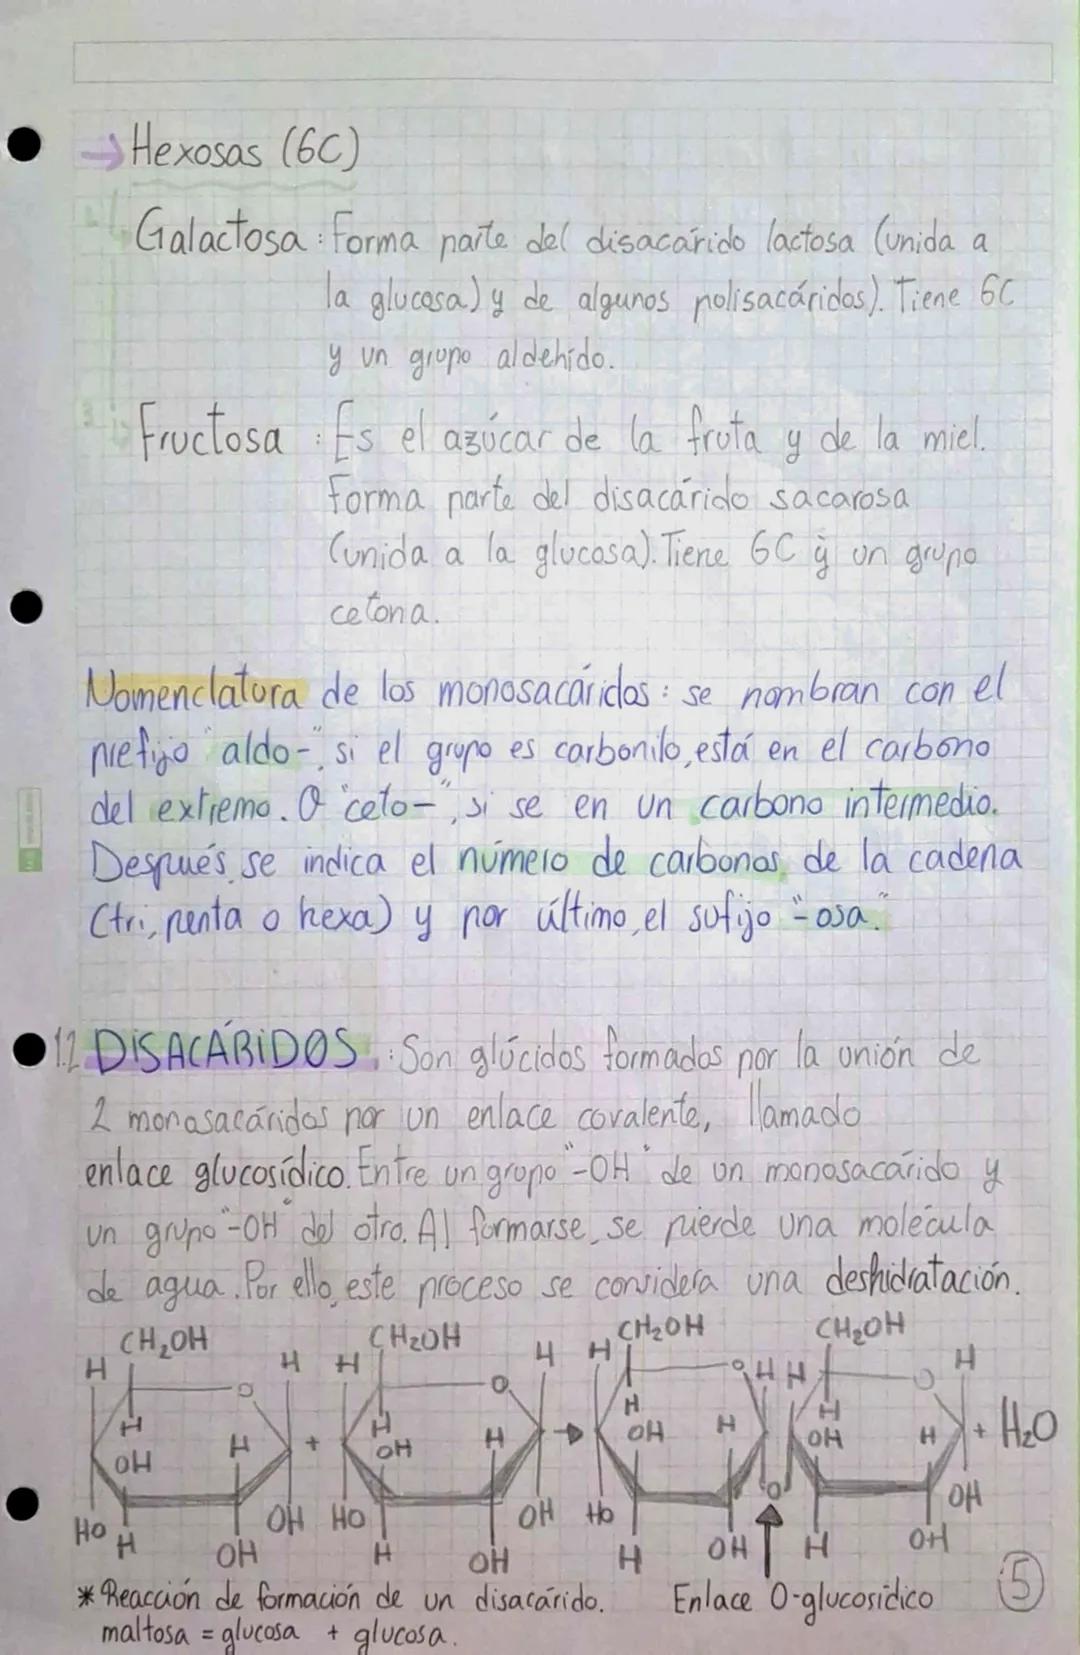 → Hexosas (6C)
Galactosa: Forma parte del disacárido lactosa (unida a
la glucosa) y de algunos polisacáridos). Tiene 6C
y un grupo aldehído.
Fructosa: Es el azúcar de la fruta y de la miel.
Forma parte del disacárido sacarosa
(unida a la glucosa). Tiene 6C y un grupo
cetona.
Nomenclatura de los monosacáridos: se nombran con el
prefijo "aldo-", si el grupo es carbonilo, está en el carbono
del extremo. O "ceto-", si se en un carbono intermedio.
Después, se indica el número de carbonos, de la cadena
(tri, penta o hexa) y por último, el sufijo "-osa."
1.2 DISACÁRIDOS.: Son glúcidos formados por la unión de
2 monosacáridos por un enlace covalente, llamado
enlace glucosídico. Entre un grupo "-OH" de un monosacárido y
un grupo "-OH" del otro. Al formarse, se pierde una molécula
de agua. Por ello, este proceso se considera una deshidratación.
CH₂OH CH₂OH CH₂OH CH₂OH
H H H H H H H H
O O O O
H H H H
OH H + OH H → OH H OH H + H₂O
O
HO OH HO OH Ho OH
H OH H OH H OH H OH
* Reacción de formación de un disacárido. Enlace O-glucosídico
maltosa = glucosa + glucosa.
5